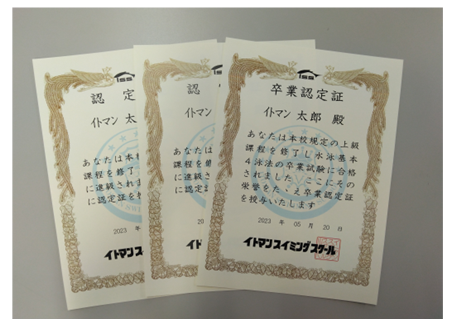 認 定
イトマン 太
あなたは本校
課程を修了
に進級され
に認定証を授
2023 年
イトマンス
認
イトマン
あなたは
課程を修
に進級さ
に認定証
20
イトマン
卒業認定証
イトマン 太郎 殿
あなたは本校規定の上級
課程を修了し水泳基本
4泳法の卒業試験に合格
されました ここにその
栄誉をたゝえ卒業認定証
を授与いたします
2023 年 05 月 20 日
イトマンスイミングスクール